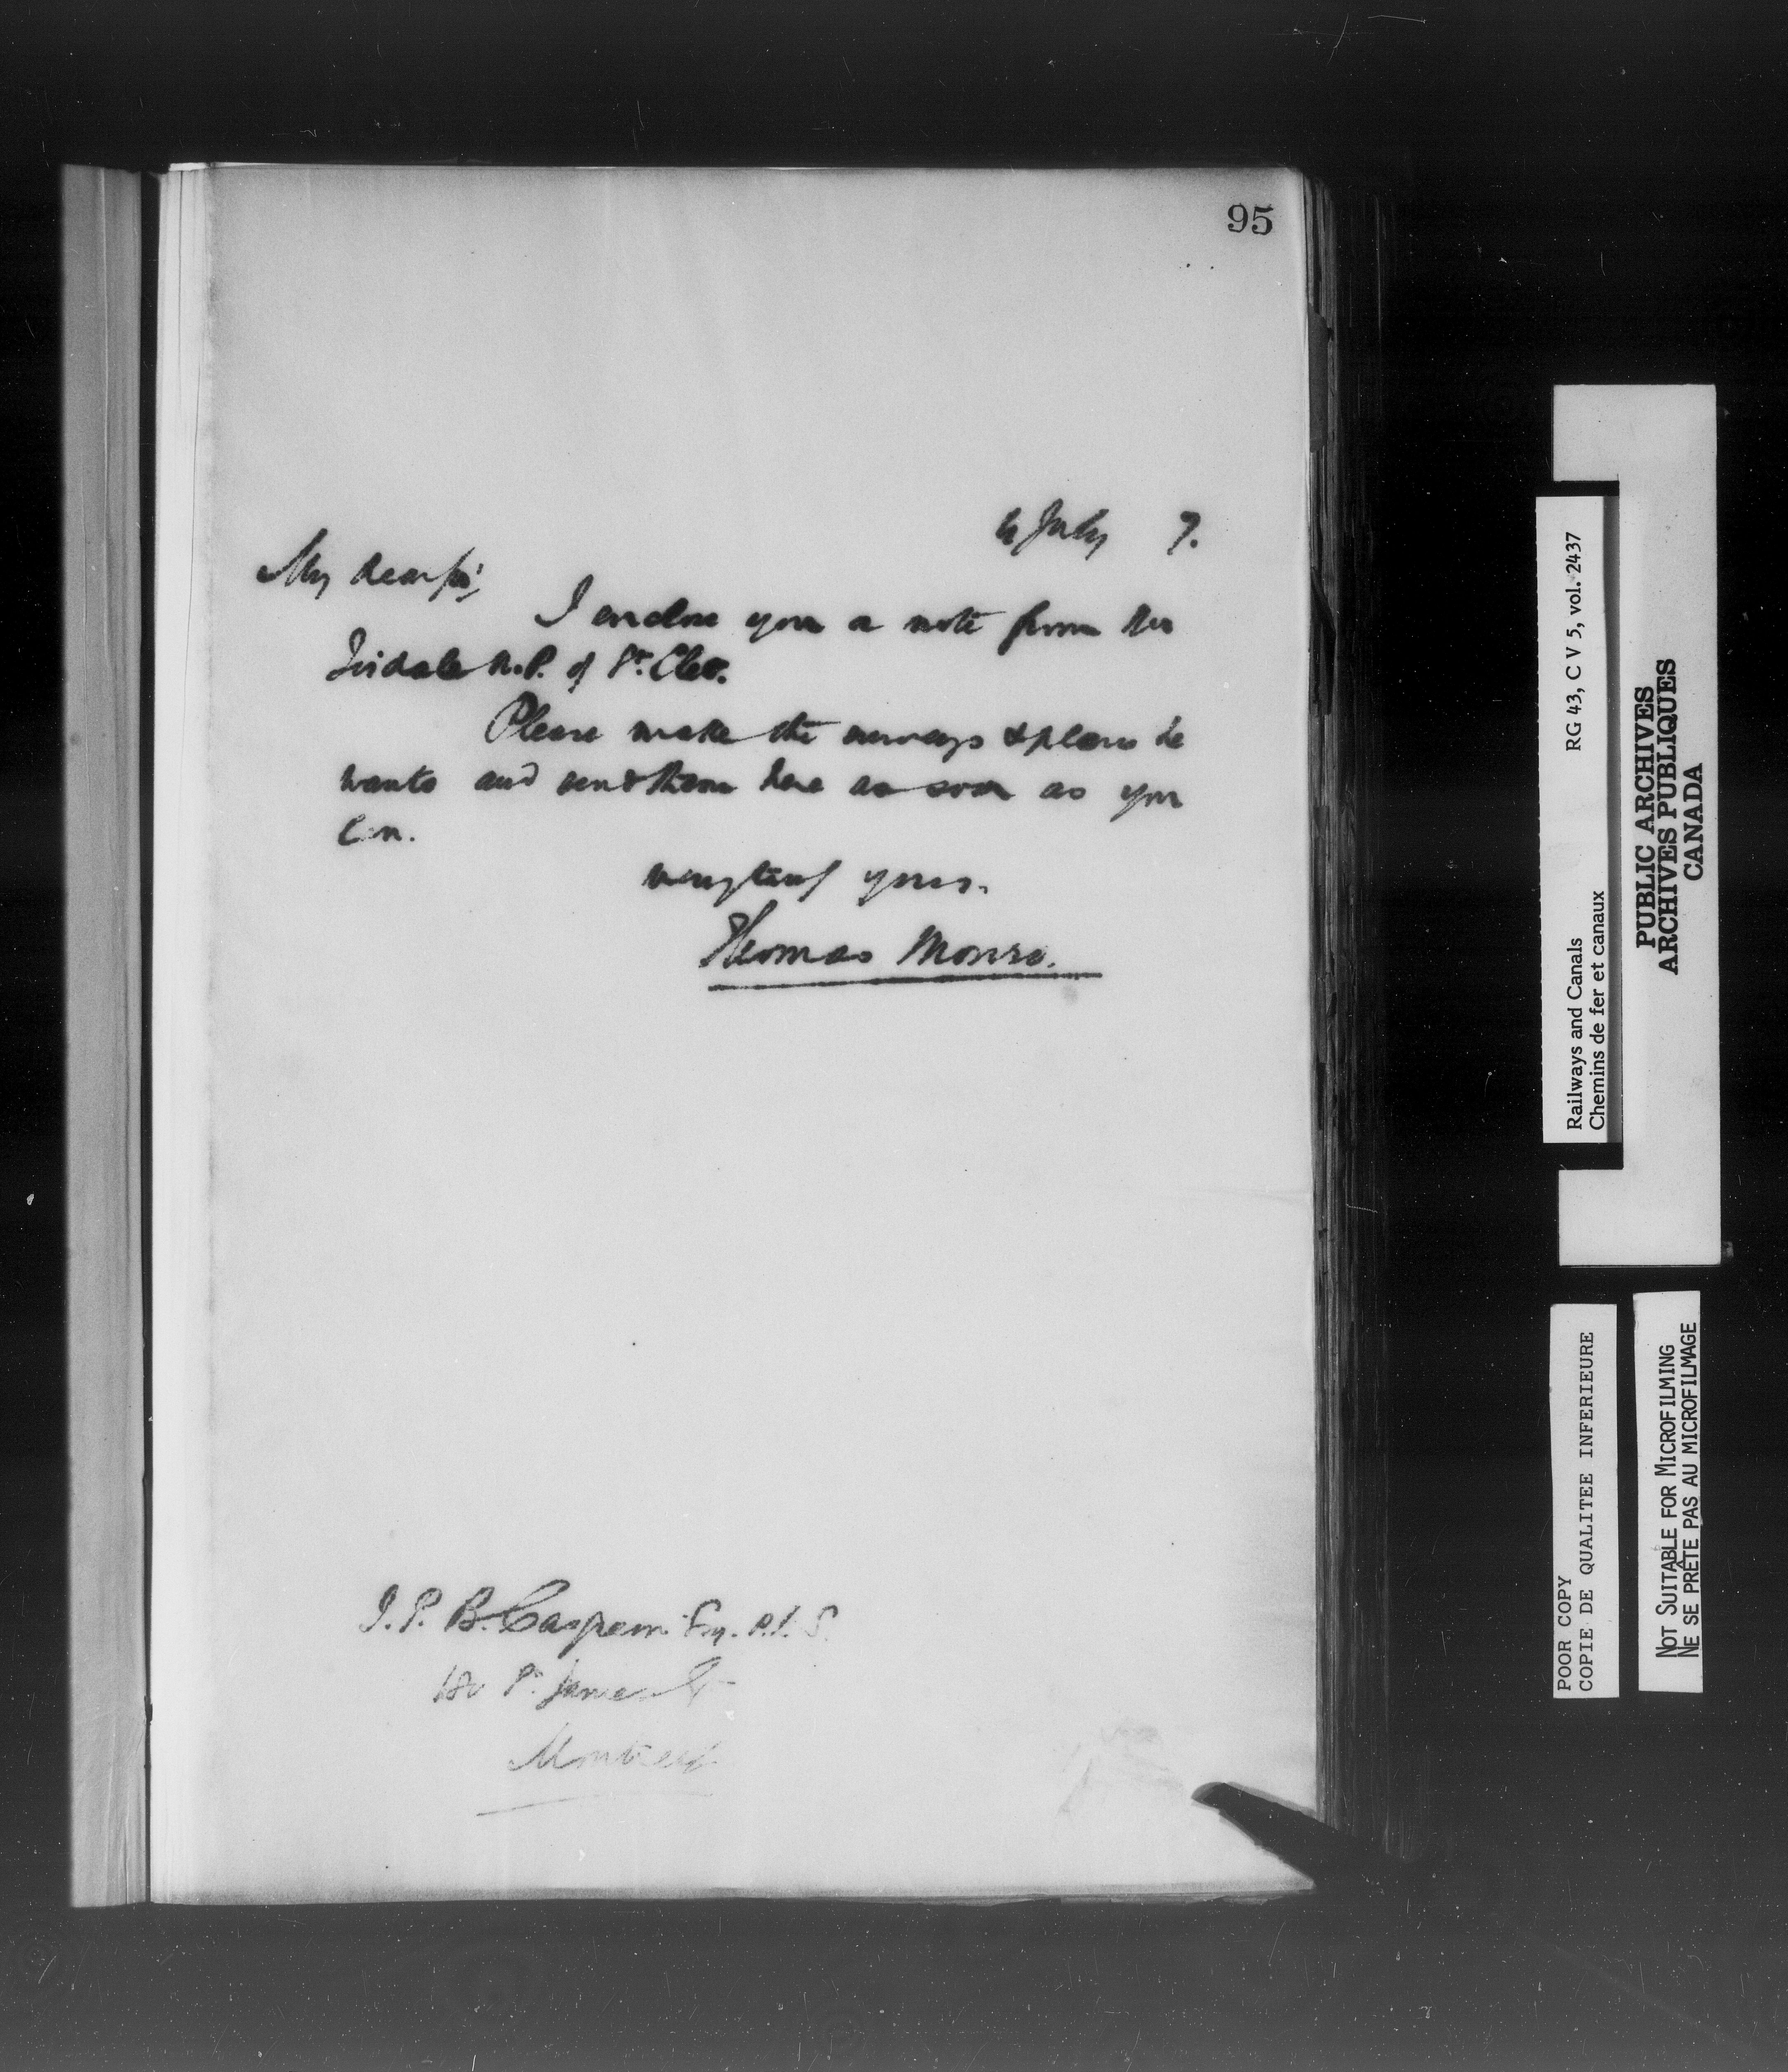 95
July 7.
My dear Sir,
I enclose you a note from Mr
N.P. of St. Cleo.
Please make the surveys & plans he
wants and send them here as soon as you
can.
very truly yours.
Thomas Monro.
J. P. B. Casgrain Esq. P.L.S.
180 St James St
Montreal
Railways and Canals RG 43, C V 5, vol. 2437
Chemins de fer et canaux
PUBLIC ARCHIVES
ARCHIVES PUBLIQUES
CANADA
POOR COPY
COPIE DE QUALITEE INFERIEURE
NOT SUITABLE FOR MICROFILMING
NE SE PRÊTE PAS AU MICROFILMAGE